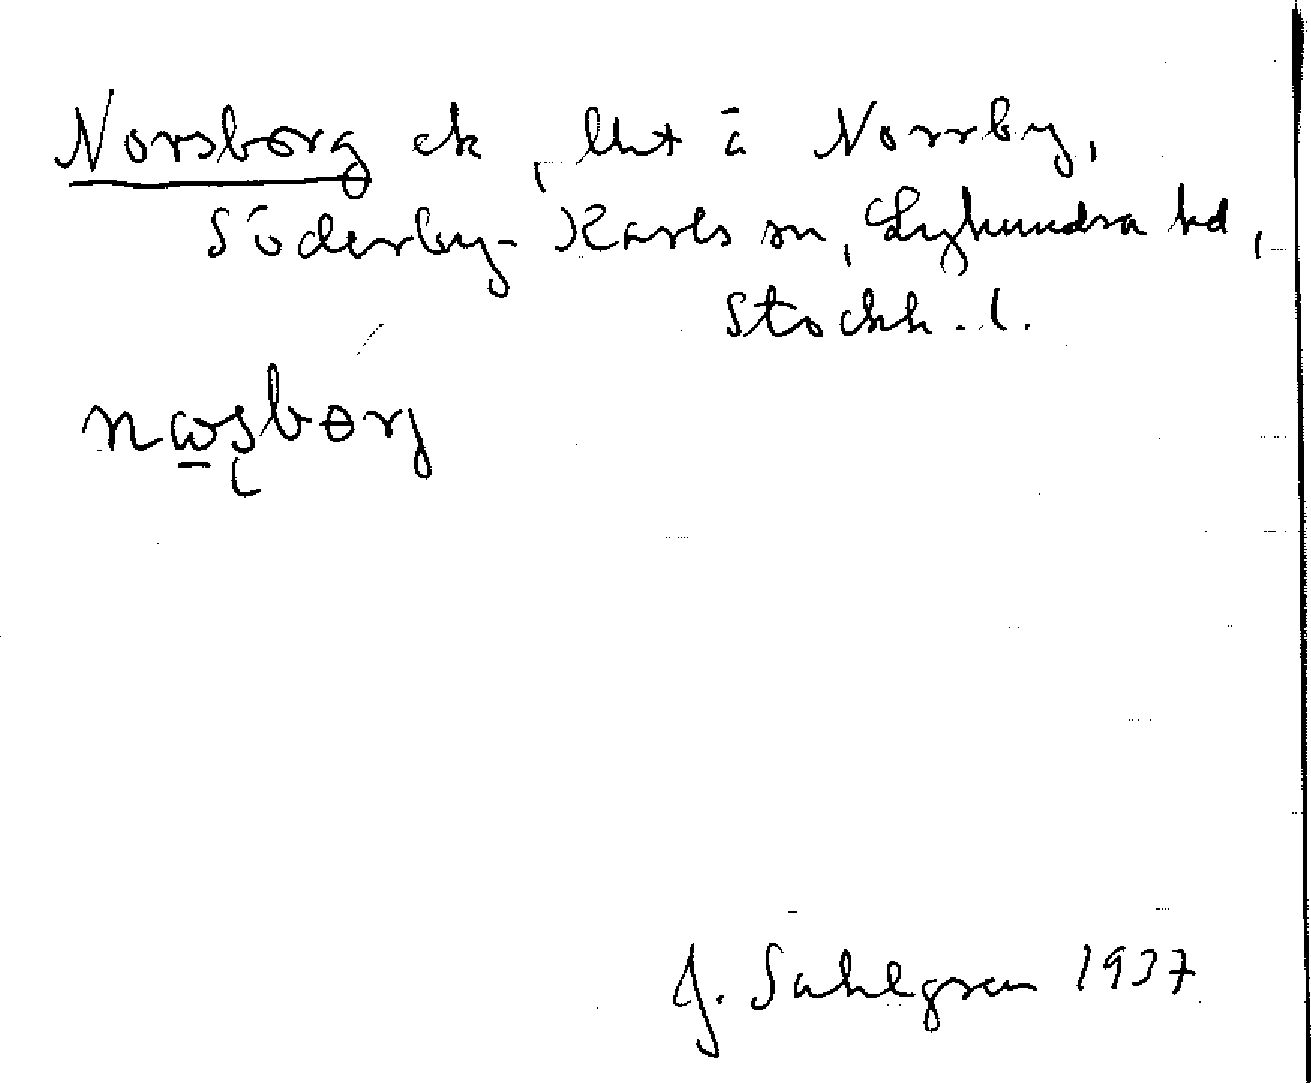 Norsborg ck, lht å Norrby,
Söderby-Karls sn, Lyhundra hd,
Stockh. l.
nꞷșbɵrj
J. Sahlgren 1937